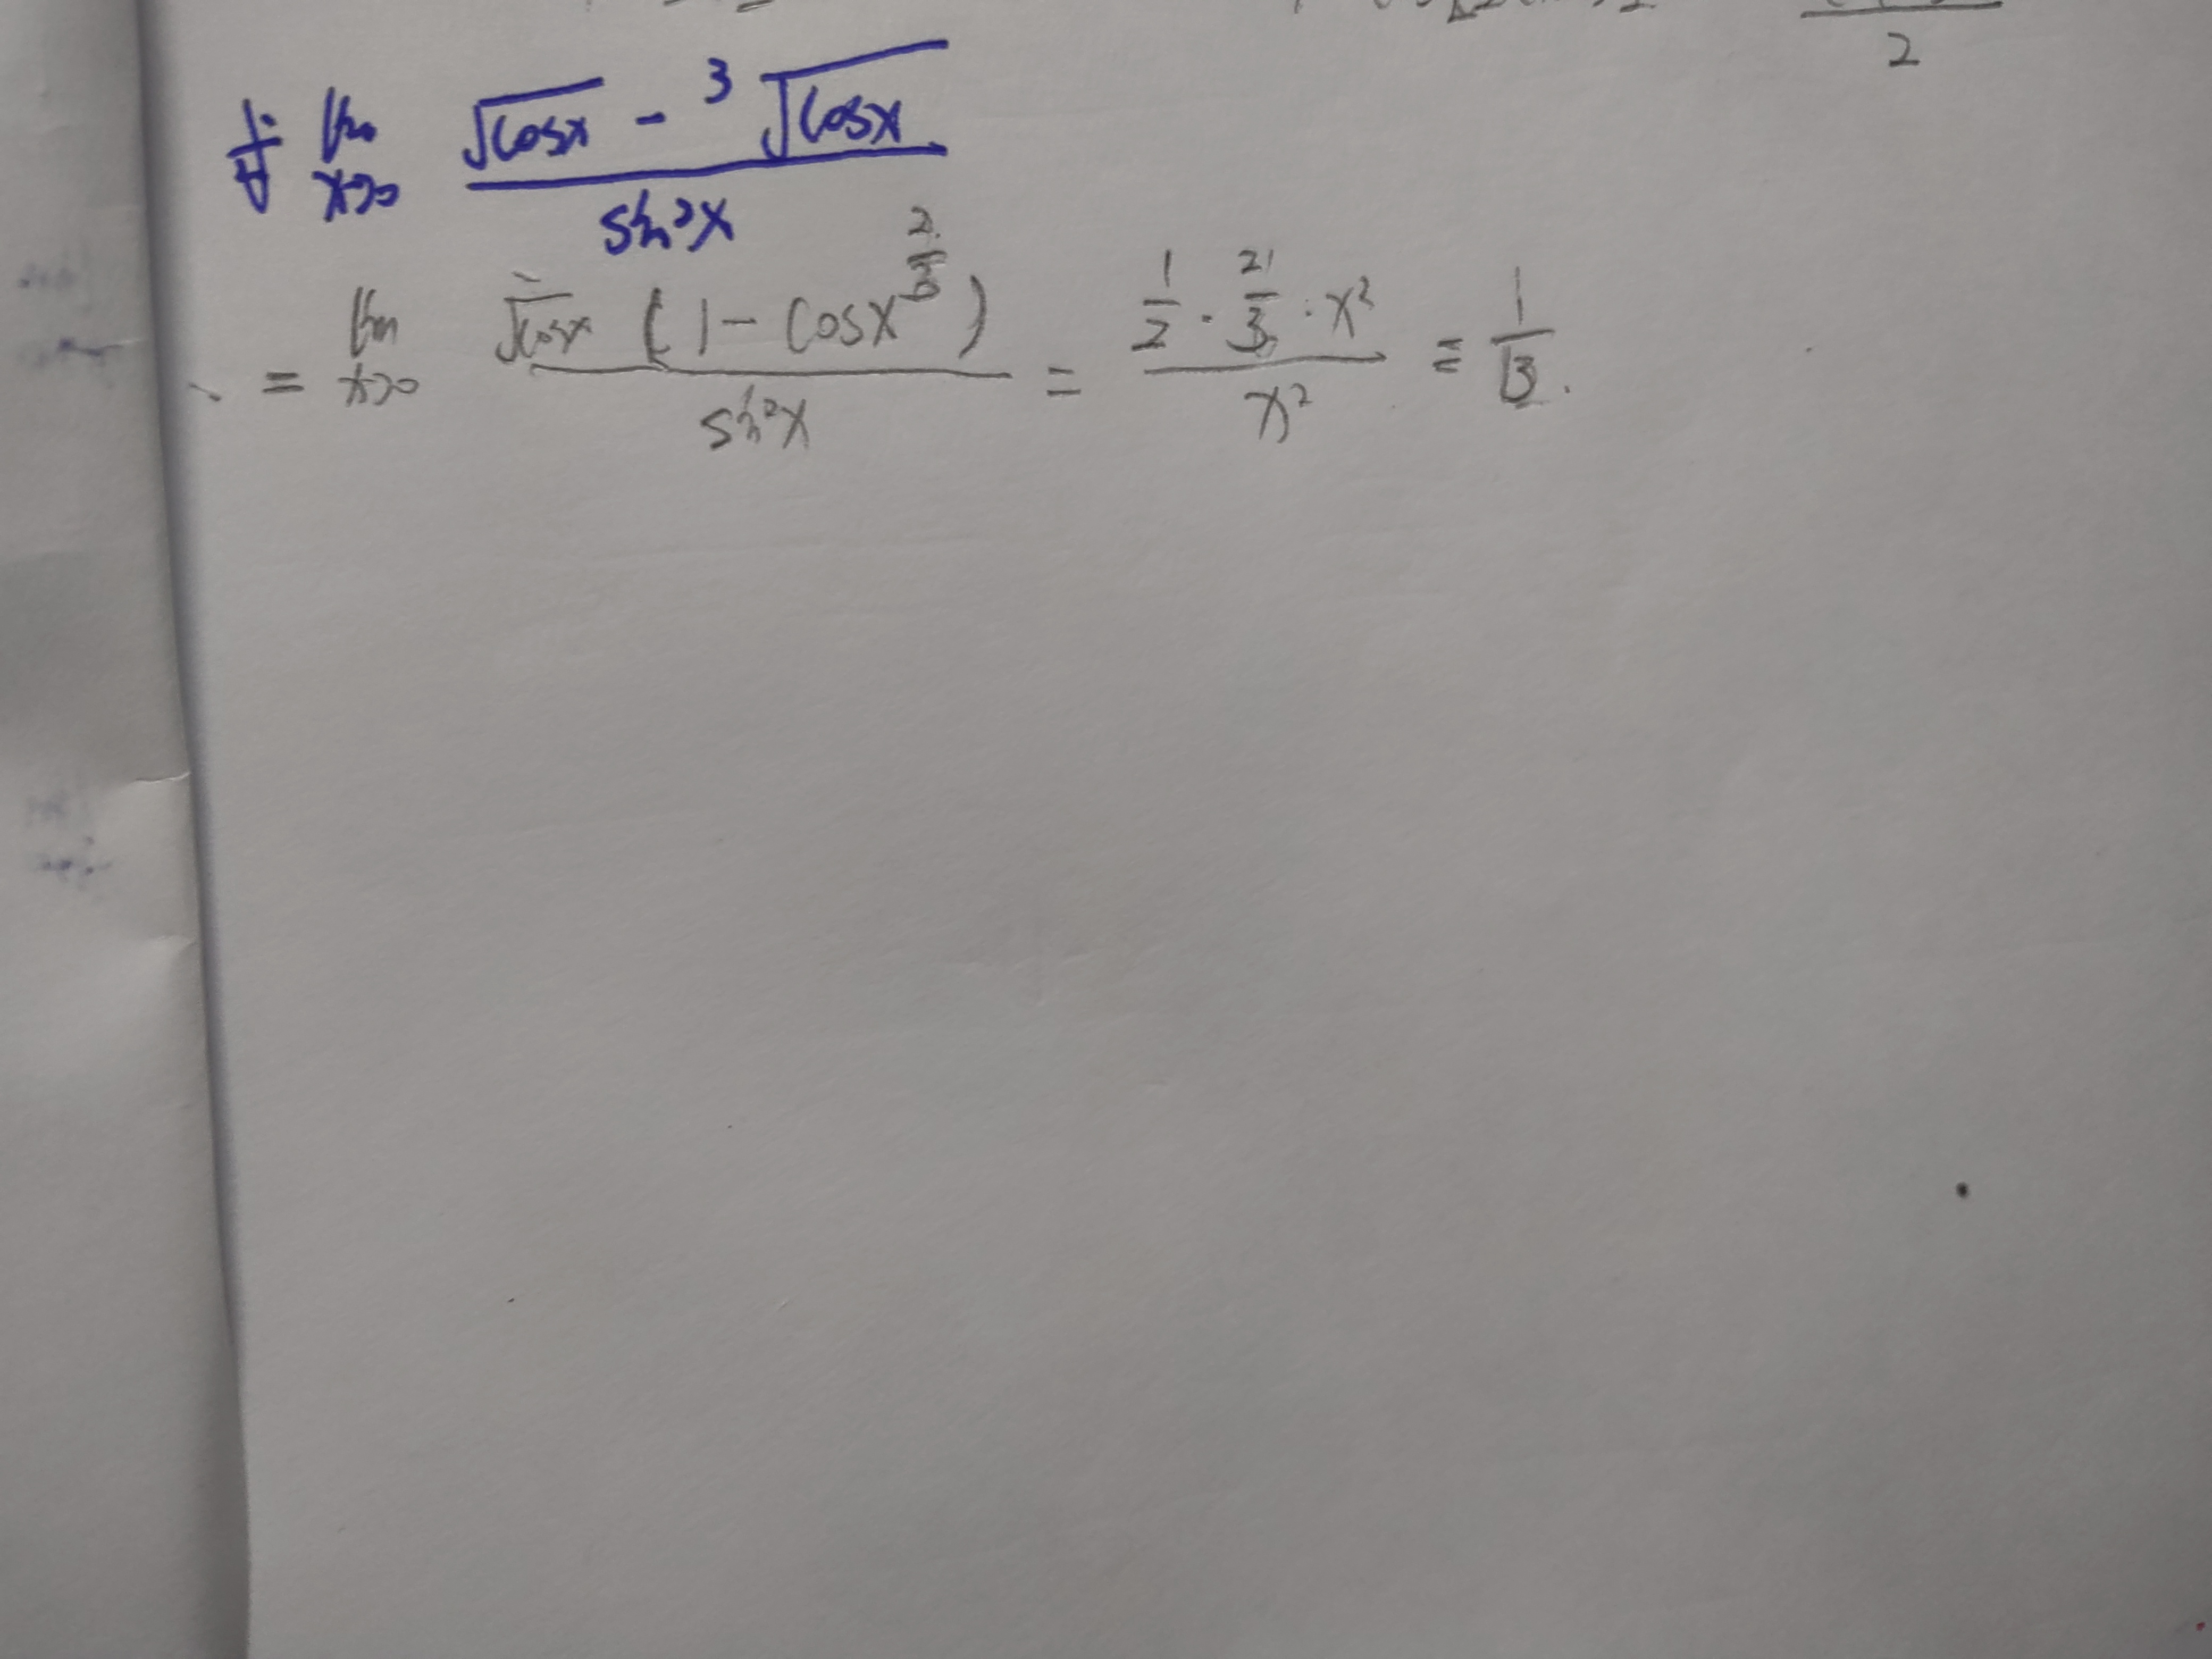 2
求 lim x→0 (√cosx - ³√cosx) / sin²x
= lim x→0 √cosx (1 - cosx^(2/3)) / sin²x = (1/2 · 2/3 · x²) / x² = 1/3.